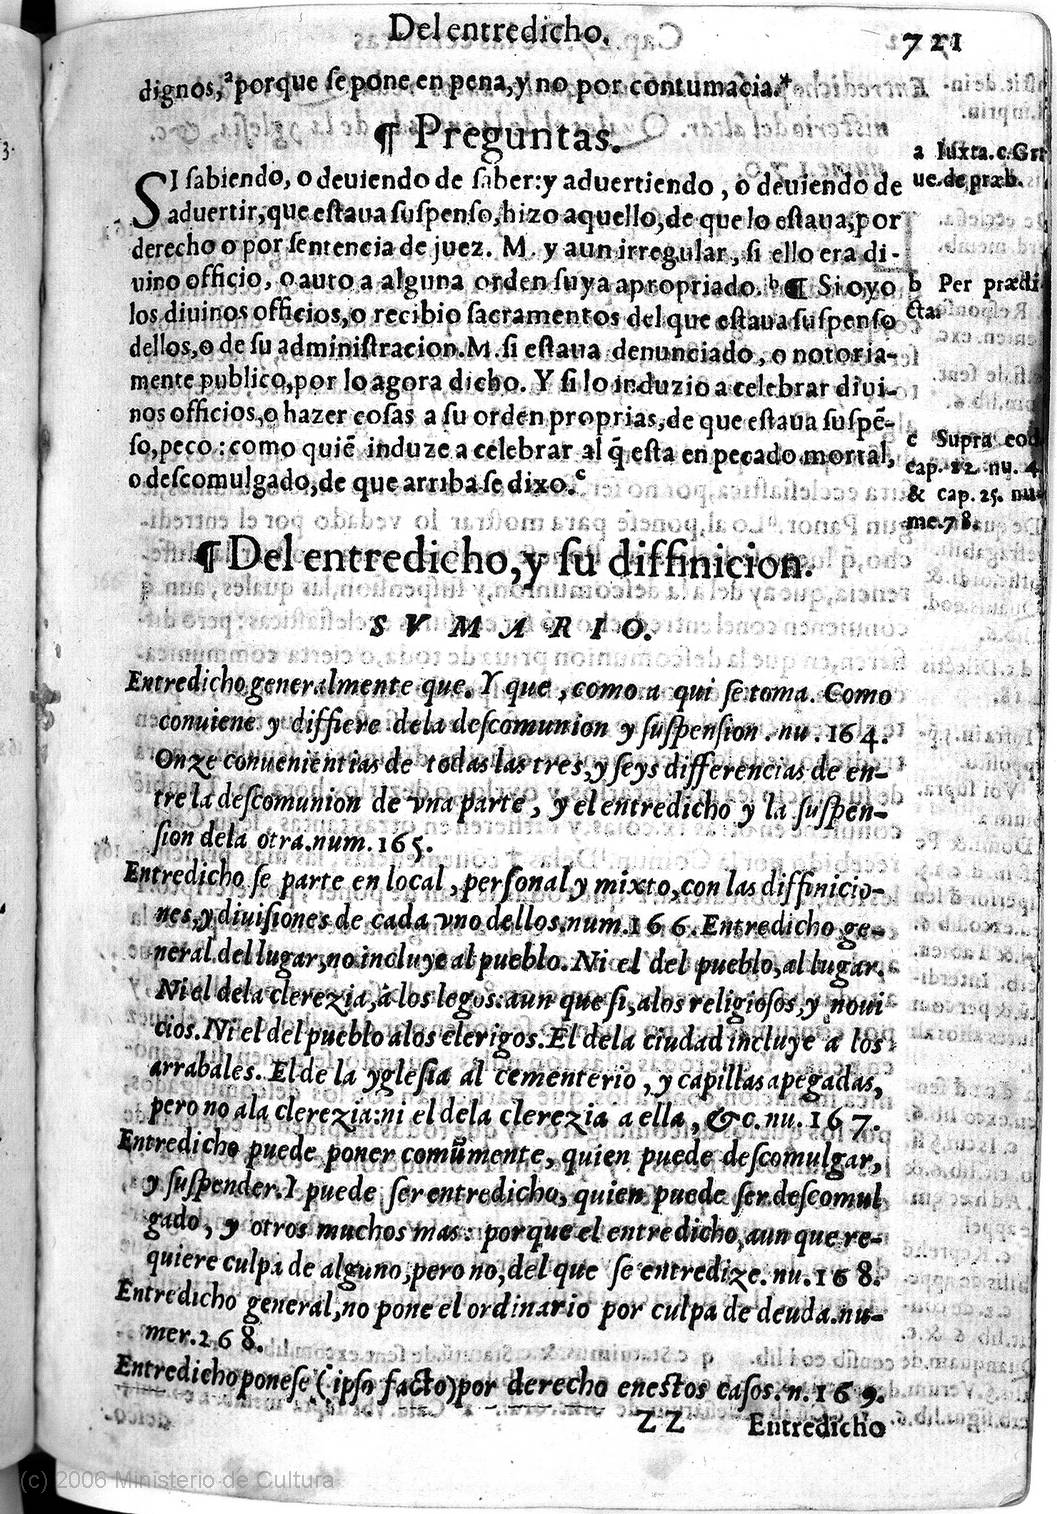 Del entredicho. 721
dignos,ª porque se pone en pena, y no por contumacia.*
¶ Preguntas.
SI sabiendo, o deuiendo de saber: y aduertiendo, o deuiendo de
aduertir, que estaua suspenso, hizo aquello, de que lo estaua, por
derecho o por sentencia de juez. M. y aun irregular, si ello era di-
uino officio, o auto a alguna orden suya apropriado.ᵇ ¶ Si oyo
los diuinos officios, o recibio sacramentos del que estaua suspenso
dellos, o de su administracion. M. si estaua denunciado, o notoria-
mente publico, por lo agora dicho. Y si lo induzio a celebrar diui-
nos officios, o hazer cosas a su orden proprias, de que estaua suspẽ-
so, peco: como quiẽ induze a celebrar al q̃ esta en pecado mortal,
o descomulgado, de que arriba se dixo.ᶜ
a Iuxta. c. Gra
ue. de præb.
b Per prædi-
cta:
c Supra eod.
cap. 22. nu. 4.
& cap. 25. nu-
me. 78.
¶ Del entredicho, y su diffinicion.
SVMARIO.
Entredicho generalmente que. Y que, como a qui se toma. Como
conuiene y diffiere dela descomunion y suspension. nu. 164.
Onze conuenientias de todas las tres, y seys differencias de en-
tre la descomunion de vna parte, y el entredicho y la suspen-
sion dela otra. num. 165.
Entredicho se parte en local, personal y mixto, con las diffinicio-
nes, y diuisiones de cada vno dellos. num. 166. Entredicho ge-
neral del lugar, no incluye al pueblo. Ni el del pueblo, al lugar.
Ni el dela clerezia, a los legos: aun que si, a los religiosos, y noui
cios. Ni el del pueblo alos clerigos. El dela ciudad incluye a los
arrabales. El de la yglesia al cementerio, y capillas apegadas,
pero no ala clerezia: ni el dela clerezia a ella, &c. nu. 167.
Entredicho puede poner comũmente, quien puede descomulgar,
y suspender. I puede ser entredicho, quien puede ser descomul
gado, y otros muchos mas: porque el entredicho, aun que re-
quiere culpa de alguno, pero no, del que se entredize. nu. 168.
Entredicho general, no pone el ordinario por culpa de deuda. nu-
mer. 268.
Entredicho ponese (ipso facto) por derecho enestos casos. n. 169.
ZZ Entredicho
(c) 2006 Ministerio de Cultura